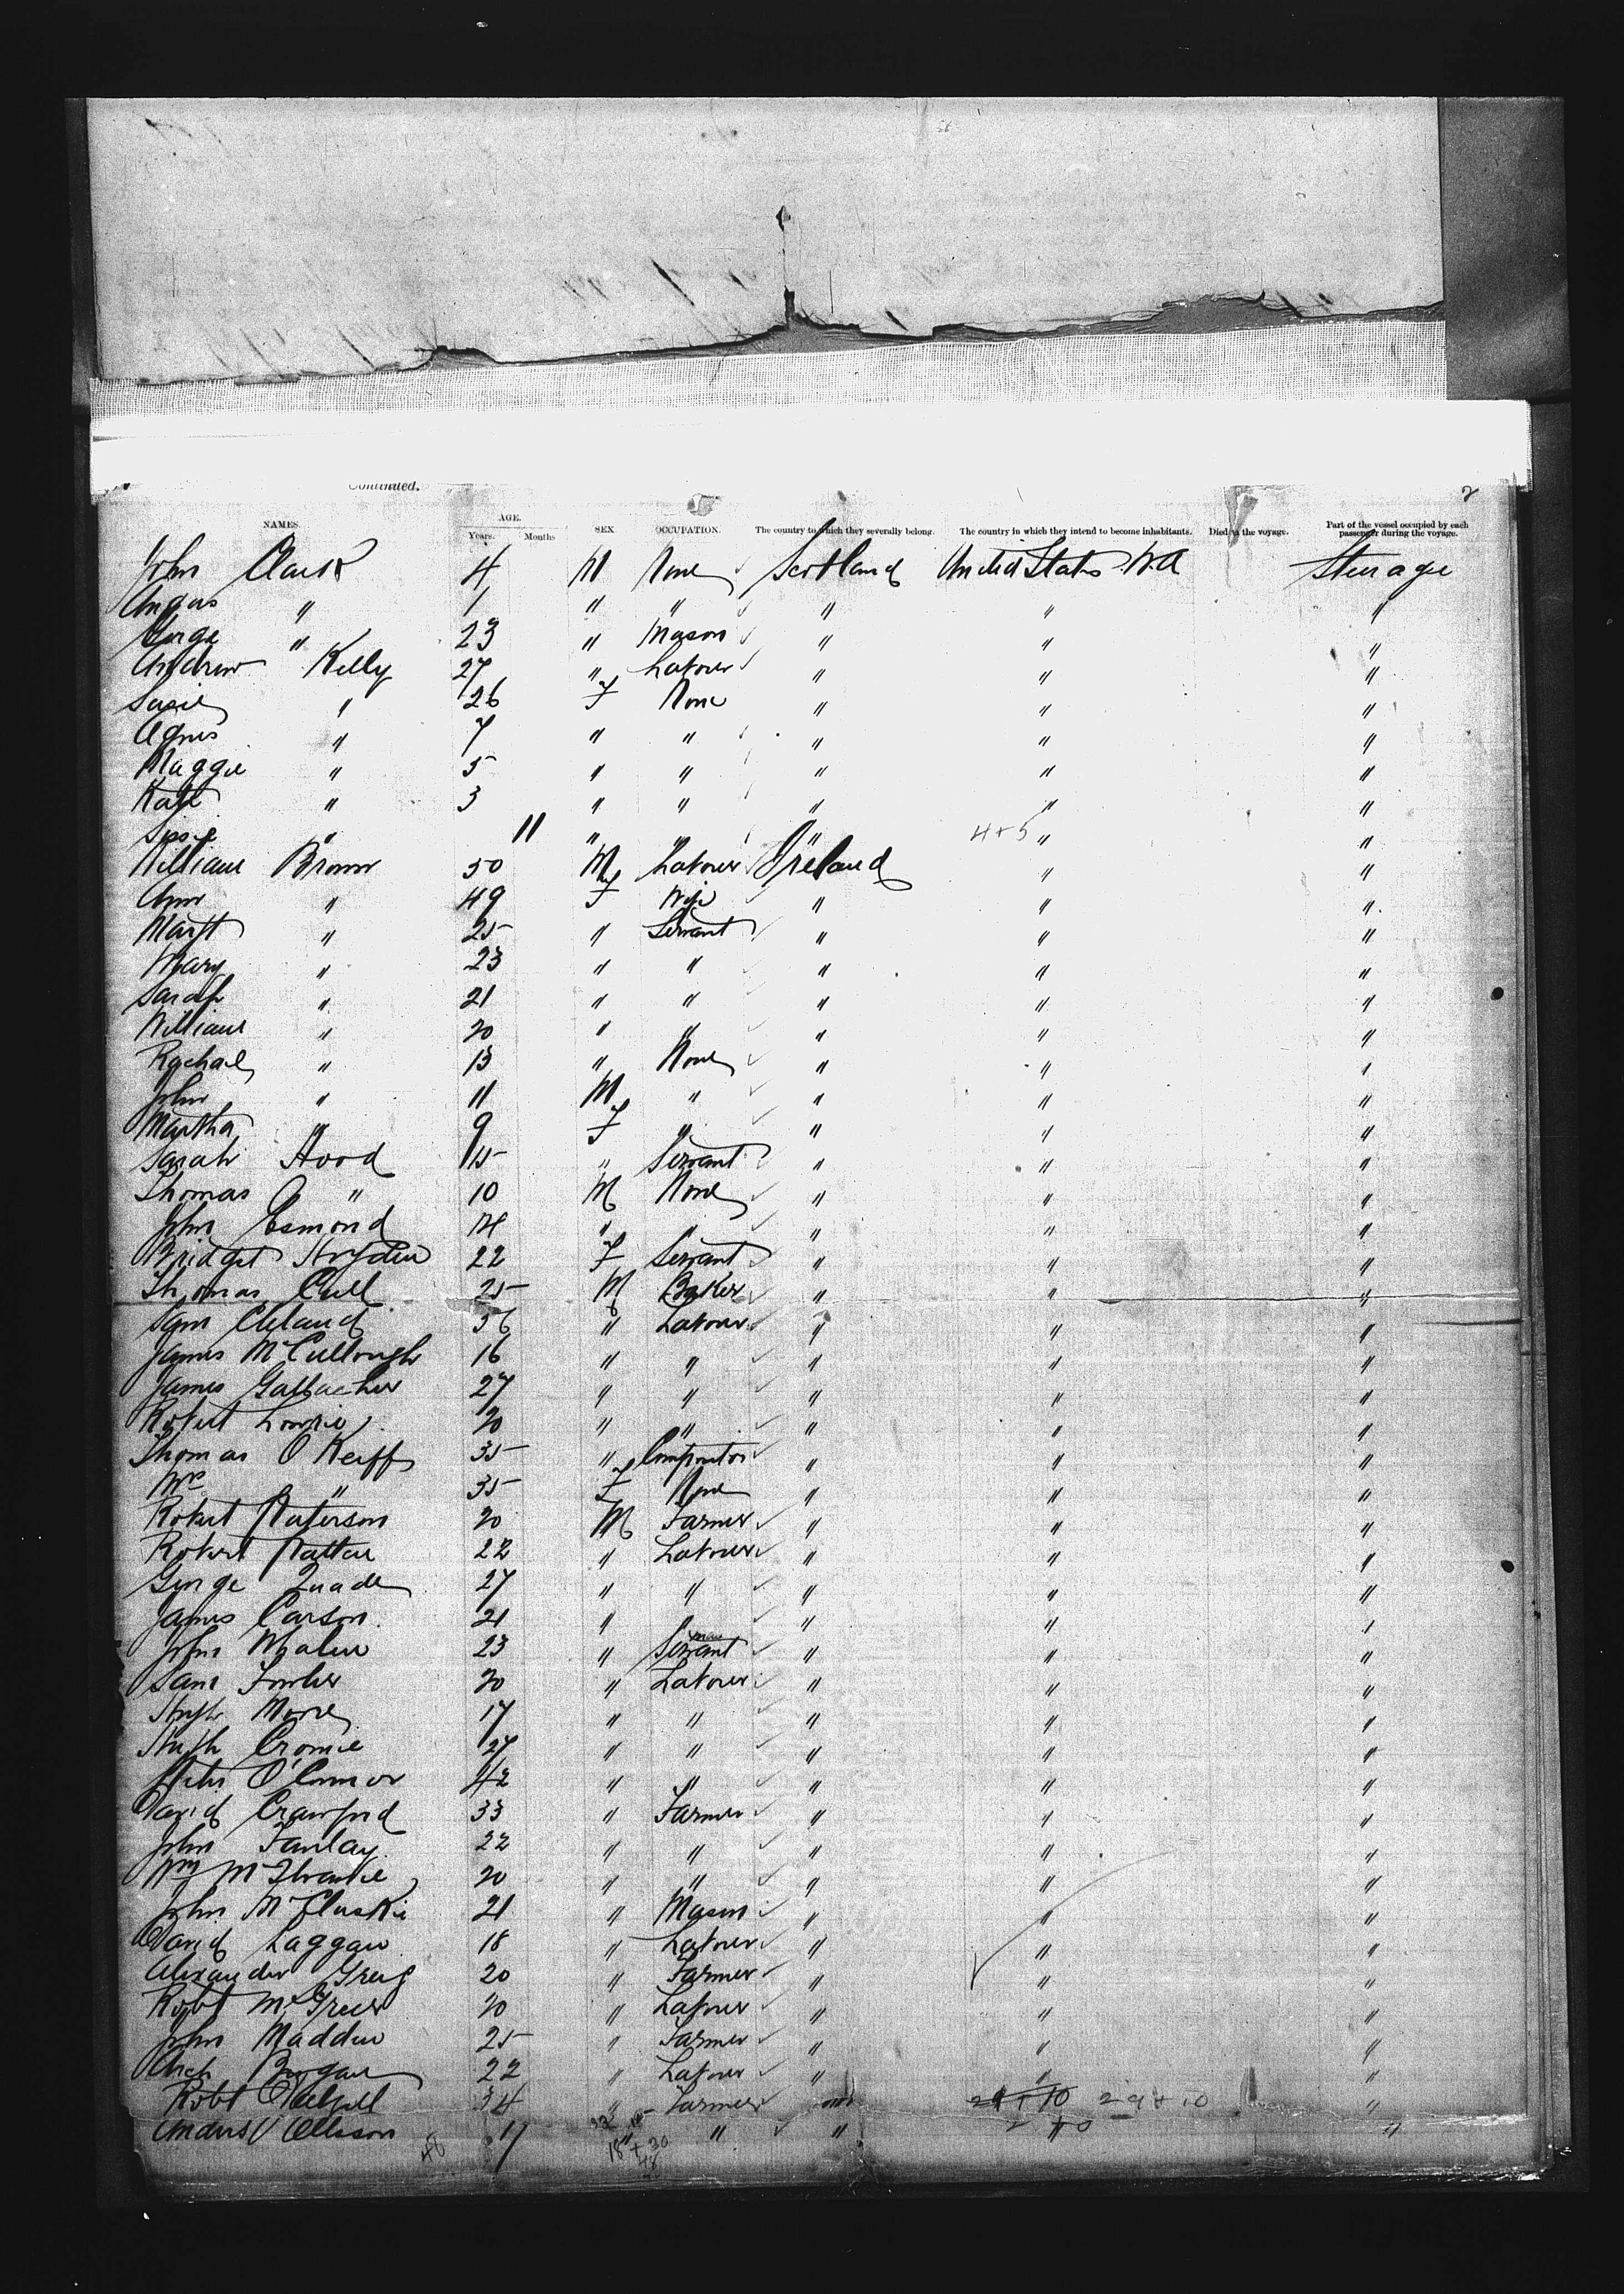 Continued.
2
NAMES. AGE. Years. Months SEX OCCUPATION. The country to which they severally belong. The country in which they intend to become inhabitants. Died on the voyage. Part of the vessel occupied by each passenger during the voyage.
John Clark 4 M None Scotland United States N.A Steerage
Angus " 1 " " " " "
George " 23 " Mason " " "
Andrew Kelly 27 " Labourer " " "
Susie " 26 F None " " "
Agnes " 7 " " " " "
Maggie " 5 " " " " "
Kate " 3 " " " " "
" 11 " " " 4+5 " "
William Brown 50 M Labourer Ireland " "
Ann " 49 F Wife " " "
Margt " 25 " Servant " " "
Mary " 23 " " " " "
Sarah " 21 " " " " "
William " 20 " " " " "
Rachael " 13 " None " " "
John " 11 M " " " "
Martha " 9 F " " " "
Sarah Hood 15 " Servant " " "
Thomas " 10 M None " " "
John Esmond " " " " "
Bridget 22 F Servant " " "
Thomas Cull 25 M Baker " " "
Sam Cleland " Labourer " " "
James McCullough 16 " " " " "
James Gallacher 27 " " " " "
Robert Lowrie 20 " " " " "
Thomas O'Keiff 35 " Compositor " " "
Mrs " 35 F None " " "
Robert Paterson 20 M Farmer " " "
Robert Patton 22 " Labourer " " "
George Quade 27 " " " " "
James Carson 21 " " " " "
John Whalen 23 " Servant man " " "
Sam Fowler 20 " Labourer " " "
Hugh Moore 17 " " " " "
Hugh Cromie 27 " " " " "
Peter O'Connor 42 " " " " "
David Crawford 33 " Farmer " " "
John Fanlay 22 " " " " "
Wm 20 " " " " "
John McCluskie 21 " Mason " " "
David Laggan 18 " Labourer " " "
Alexander Greig 20 " Farmer " " "
Robt McGreer 20 " Labourer " " "
John Madden 25 " Farmer " " "
Arch Brogan 22 " Labourer " " "
Robt 34 " Farmer 29+10 "
Anders Ollsson 17 " " " " "
48 18 + 30
48